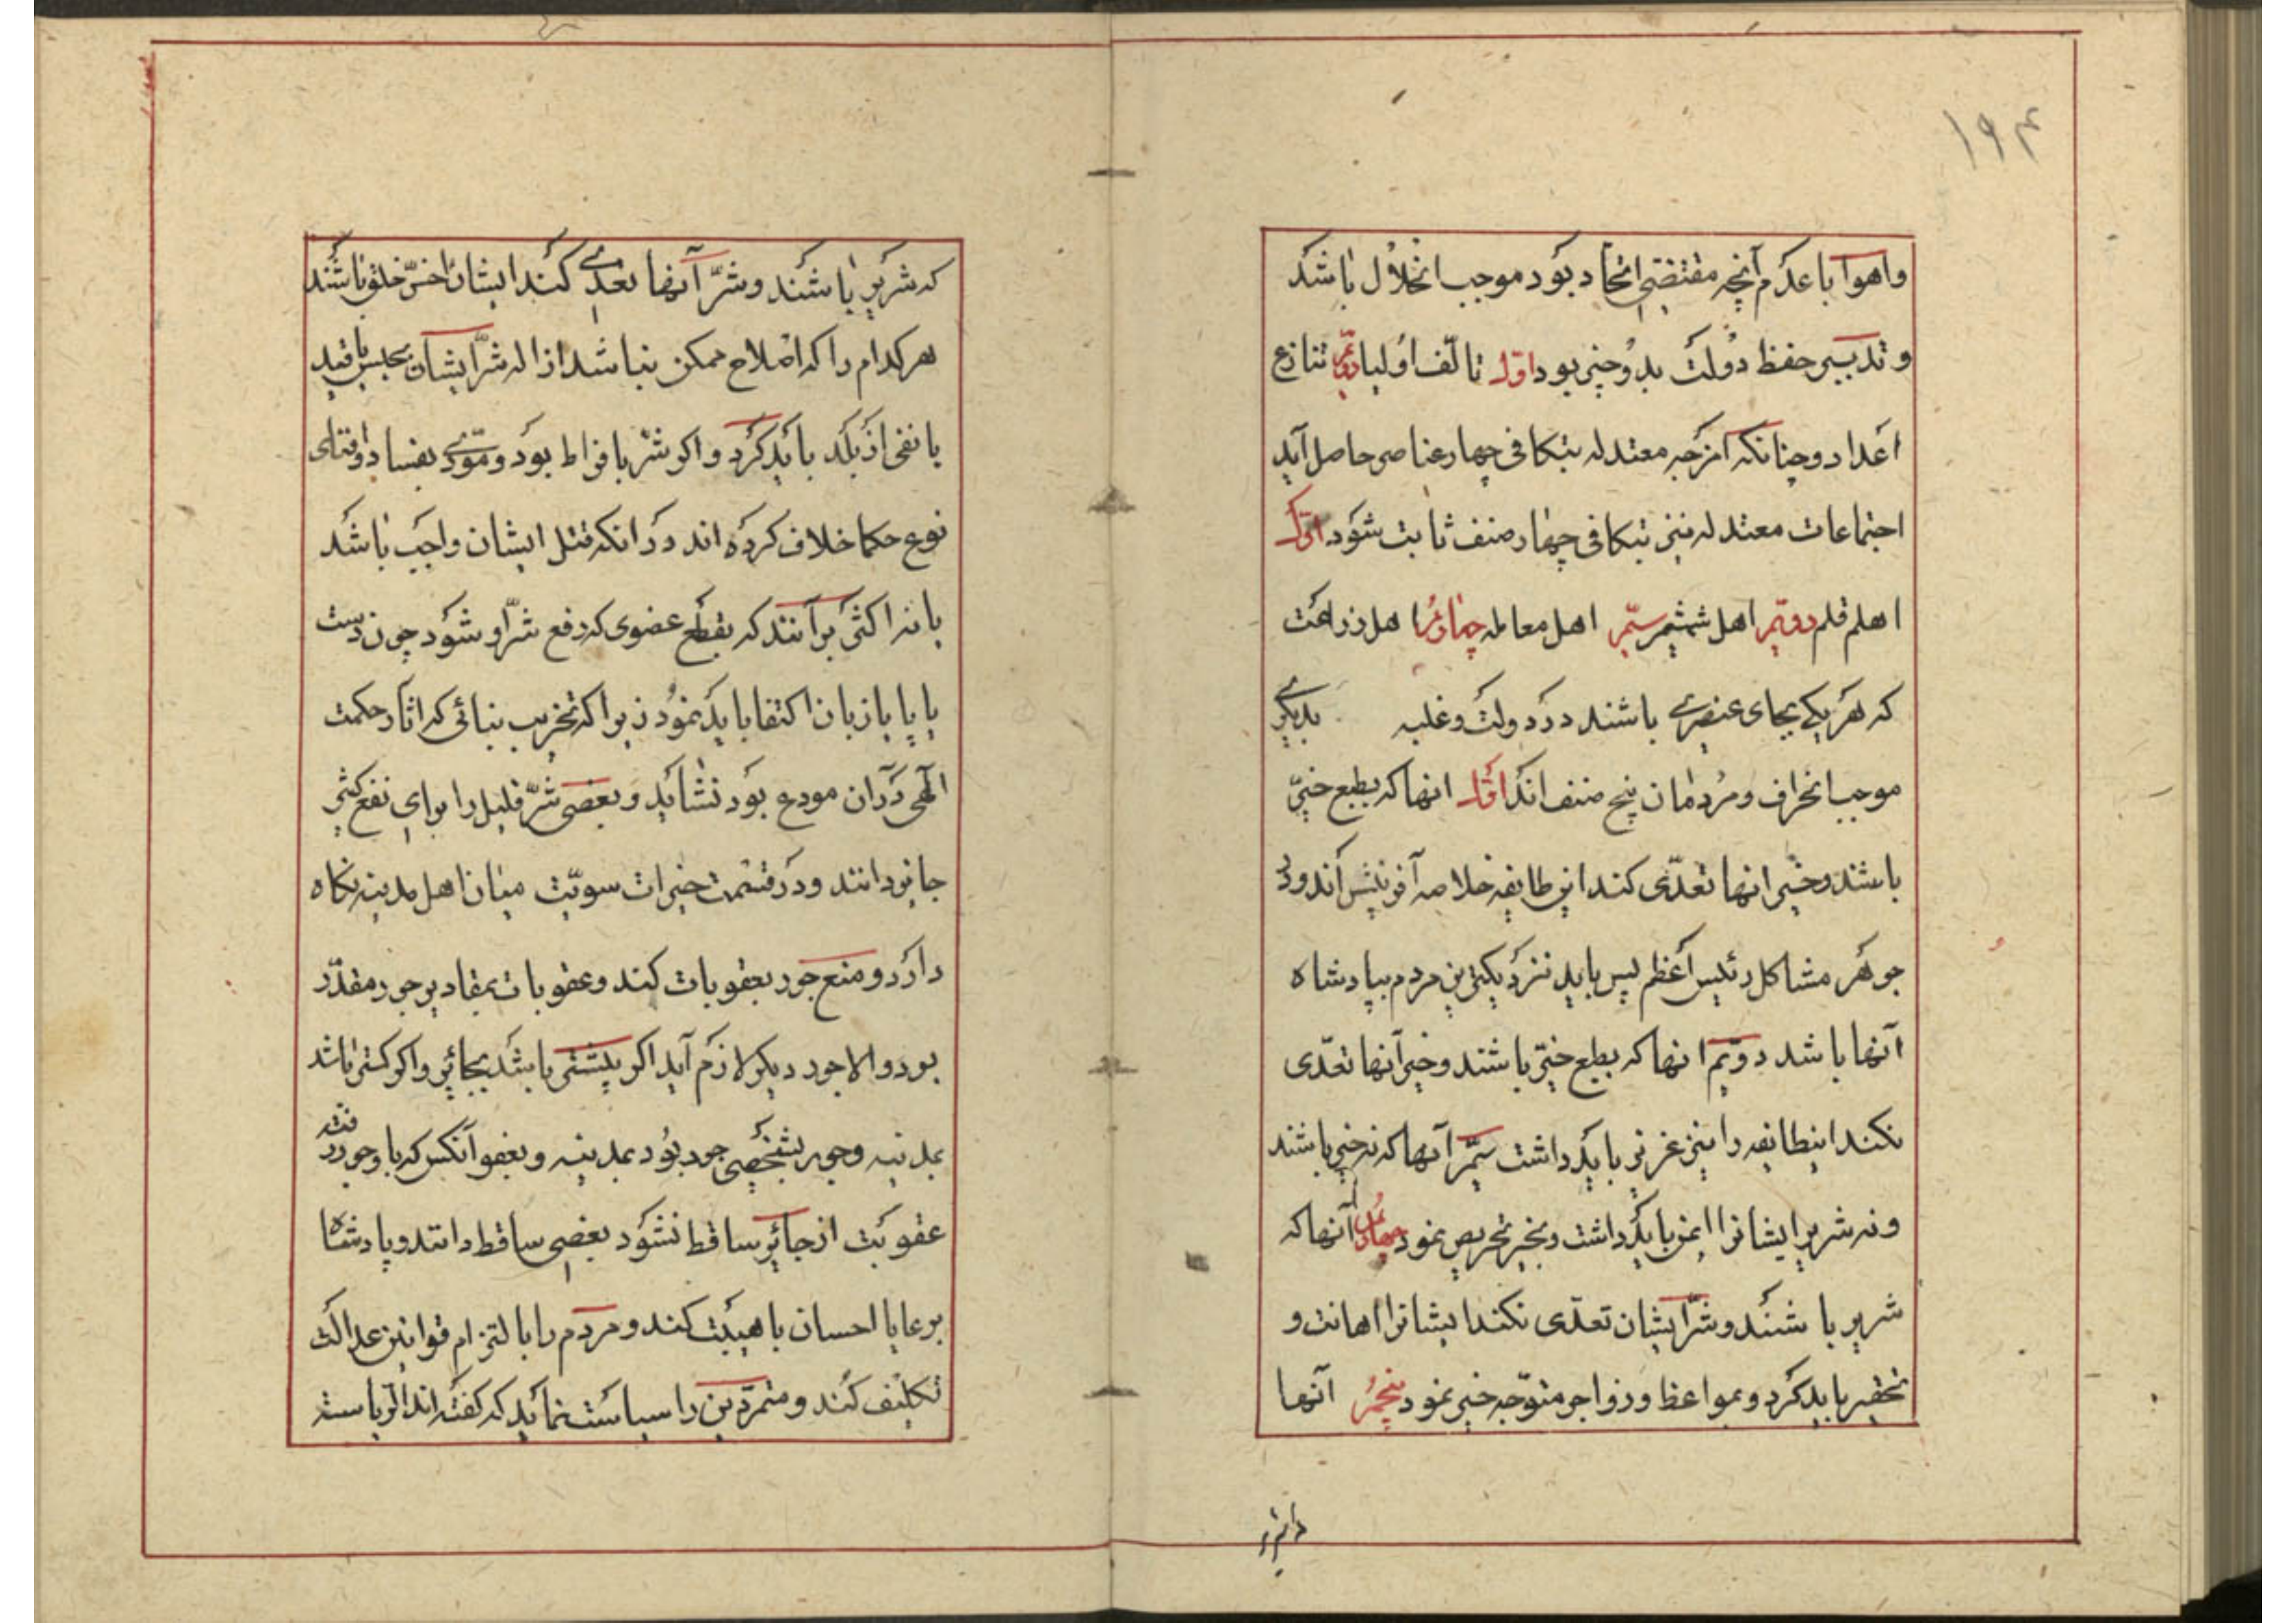 ۱۹۴
واهوا با عدم آنچه مقتضی اتحاد بود موجب انحلال باشد
و تدبیر حفظ دولت بدو چیز بود اول تالف اولیا دویم تنازع
اعدا و چنانکه امزجه معتدله بتکافی چهار عناصر حاصل آید
اجتماعات معتدله نیز بتکافی چهار صنف ثابت شود اول
اهل قلم دویم اهل شمشیر سیم اهل معامله چهارم اهل زراعت
که هر یکی بجای عنصری باشند در دولت و غلبه بدیگری
موجب انحراف و مردمان پنج صنف اند اول انها که بطبع خیر
باشند و خیر انها تعدی کند این طایفه خلاصه آفرینش اند و در
جوهر مشاکل رئیس اعظم پس باید نزدیکترین مردم بپادشاه
آنها باشد دویم انها که بطبع خیر باشند و خیر آنها تعدی
نکند اینطایفه را نیز عزیز باید داشت سیم آنها که نه خیر باشند
ونه شریر ایشانرا ایمن باید داشت و بخیر تحریص نمود چهارم آنها که
شریر باشند و شر ایشان تعدی نکند ایشانرا اهانت و
تحقیر باید کرد و بمواعظ و زواجر متوجه خیر نمود پنجم آنها
که شریر باشند و شر آنها تعدی کند ایشان اخس خلق باشند
هر کدام را که اصلاح ممکن نباشد ازاله شر ایشان بحبس یا قید
یا نفی از بلد باید کرد و اگر شر بافراط بود و مودی بفساد وافنای
نوع حکما خلاف کرده اند در انکه قتل ایشان واجب باشد
یا نه اکثر بر آنند که بقطع عضوی که دفع شر او شود چون دست
یا پا یا زبان اکتفا باید نمود زیرا که تخریب بنائی که اثار حکمت
الهی در آن مودع بود نشاید و بعضی شر قلیل را برای نفع کثیر
جایز دانند و در قسمت خیرات سویت میان اهل مدینه نگاه
دارد و منع جور بعقوبات کند و عقوبات بمقادیر جور مقدر
بود والا جور دیگر لازم آید اگر بیشتر باشد بجائر و اگر کمتر باشد
بمدینه و جور بشخصی جور بود بمدینه و بعفو آنکس که با او جور رفته
عقوبت از جائر ساقط نشود بعضی ساقط دانند و پادشاه
برعایا احسان با هیبت کند و مردم را بالتزام قوانین عدالت
تکلیف کند و متمردین را سیاست نماید که گفته اند الریاسته